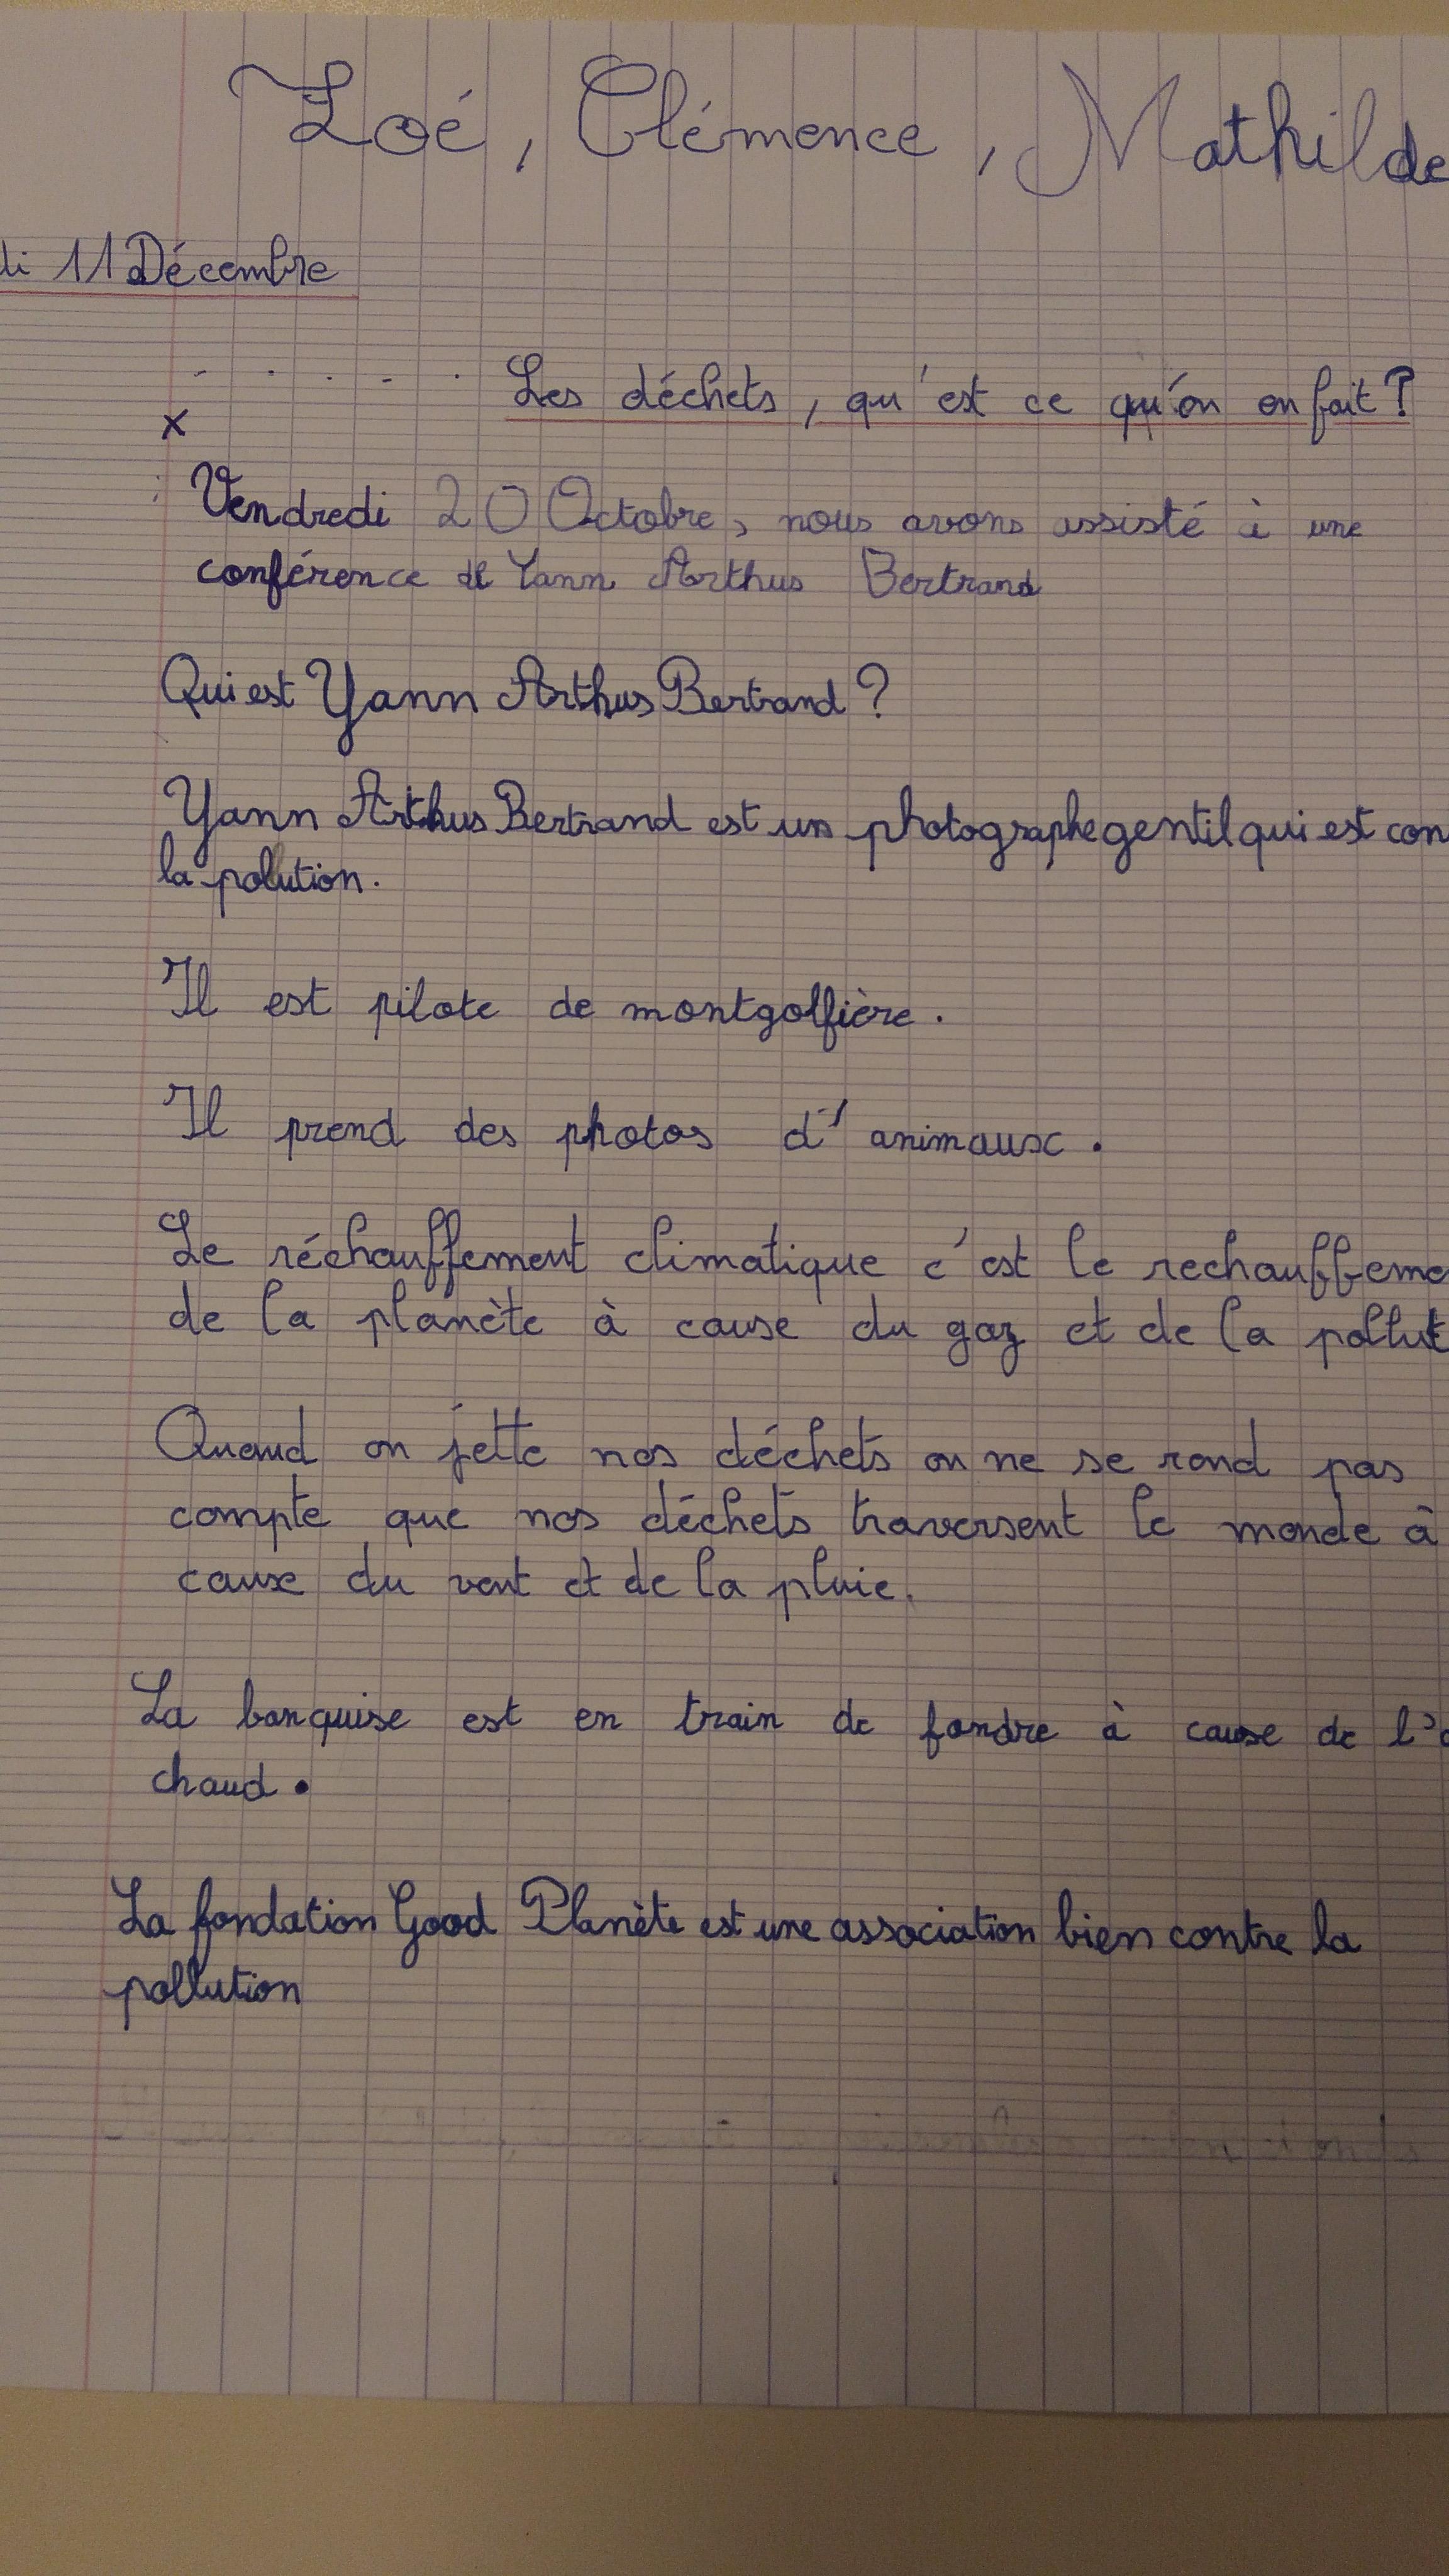 Zoé, Clémence, Mathilde
di 11 Décembre
Les déchets, qu'est ce qu'on en fait ?
x
Vendredi 20 Octobre, nous avons assisté à une
conférence de Yann Arthus Bertrand
Qui est Yann Arthus Bertrand ?
Yann Arthus Bertrand est un photographe gentil qui est con
la polution.
Il est pilote de montgolfière.
Il prend des photos d'animaux.
Le réchauffement climatique c'est le rechauffeme
de la planète à cause du gaz et de la pollut
Quand on jette nos déchets on ne se rend pas
compte que nos déchets traversent le monde à
cause du vent et de la pluie.
La banquise est en train de fondre à cause de l'
chaud.
La fondation Good Planète est une association bien contre la
pollution